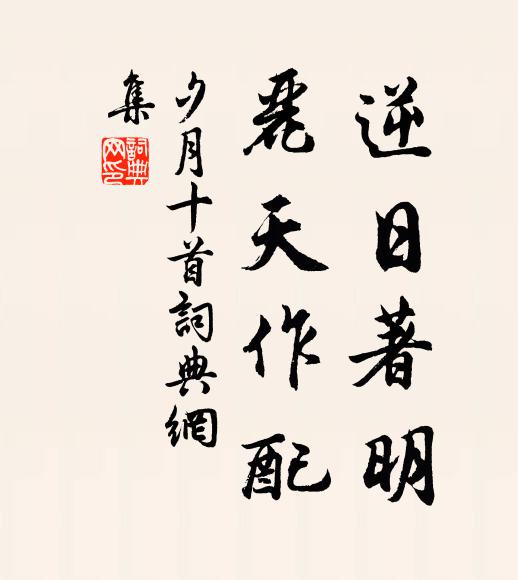 逆日著明
麗天作配
夕月十首詞典網
集
詞典
网印